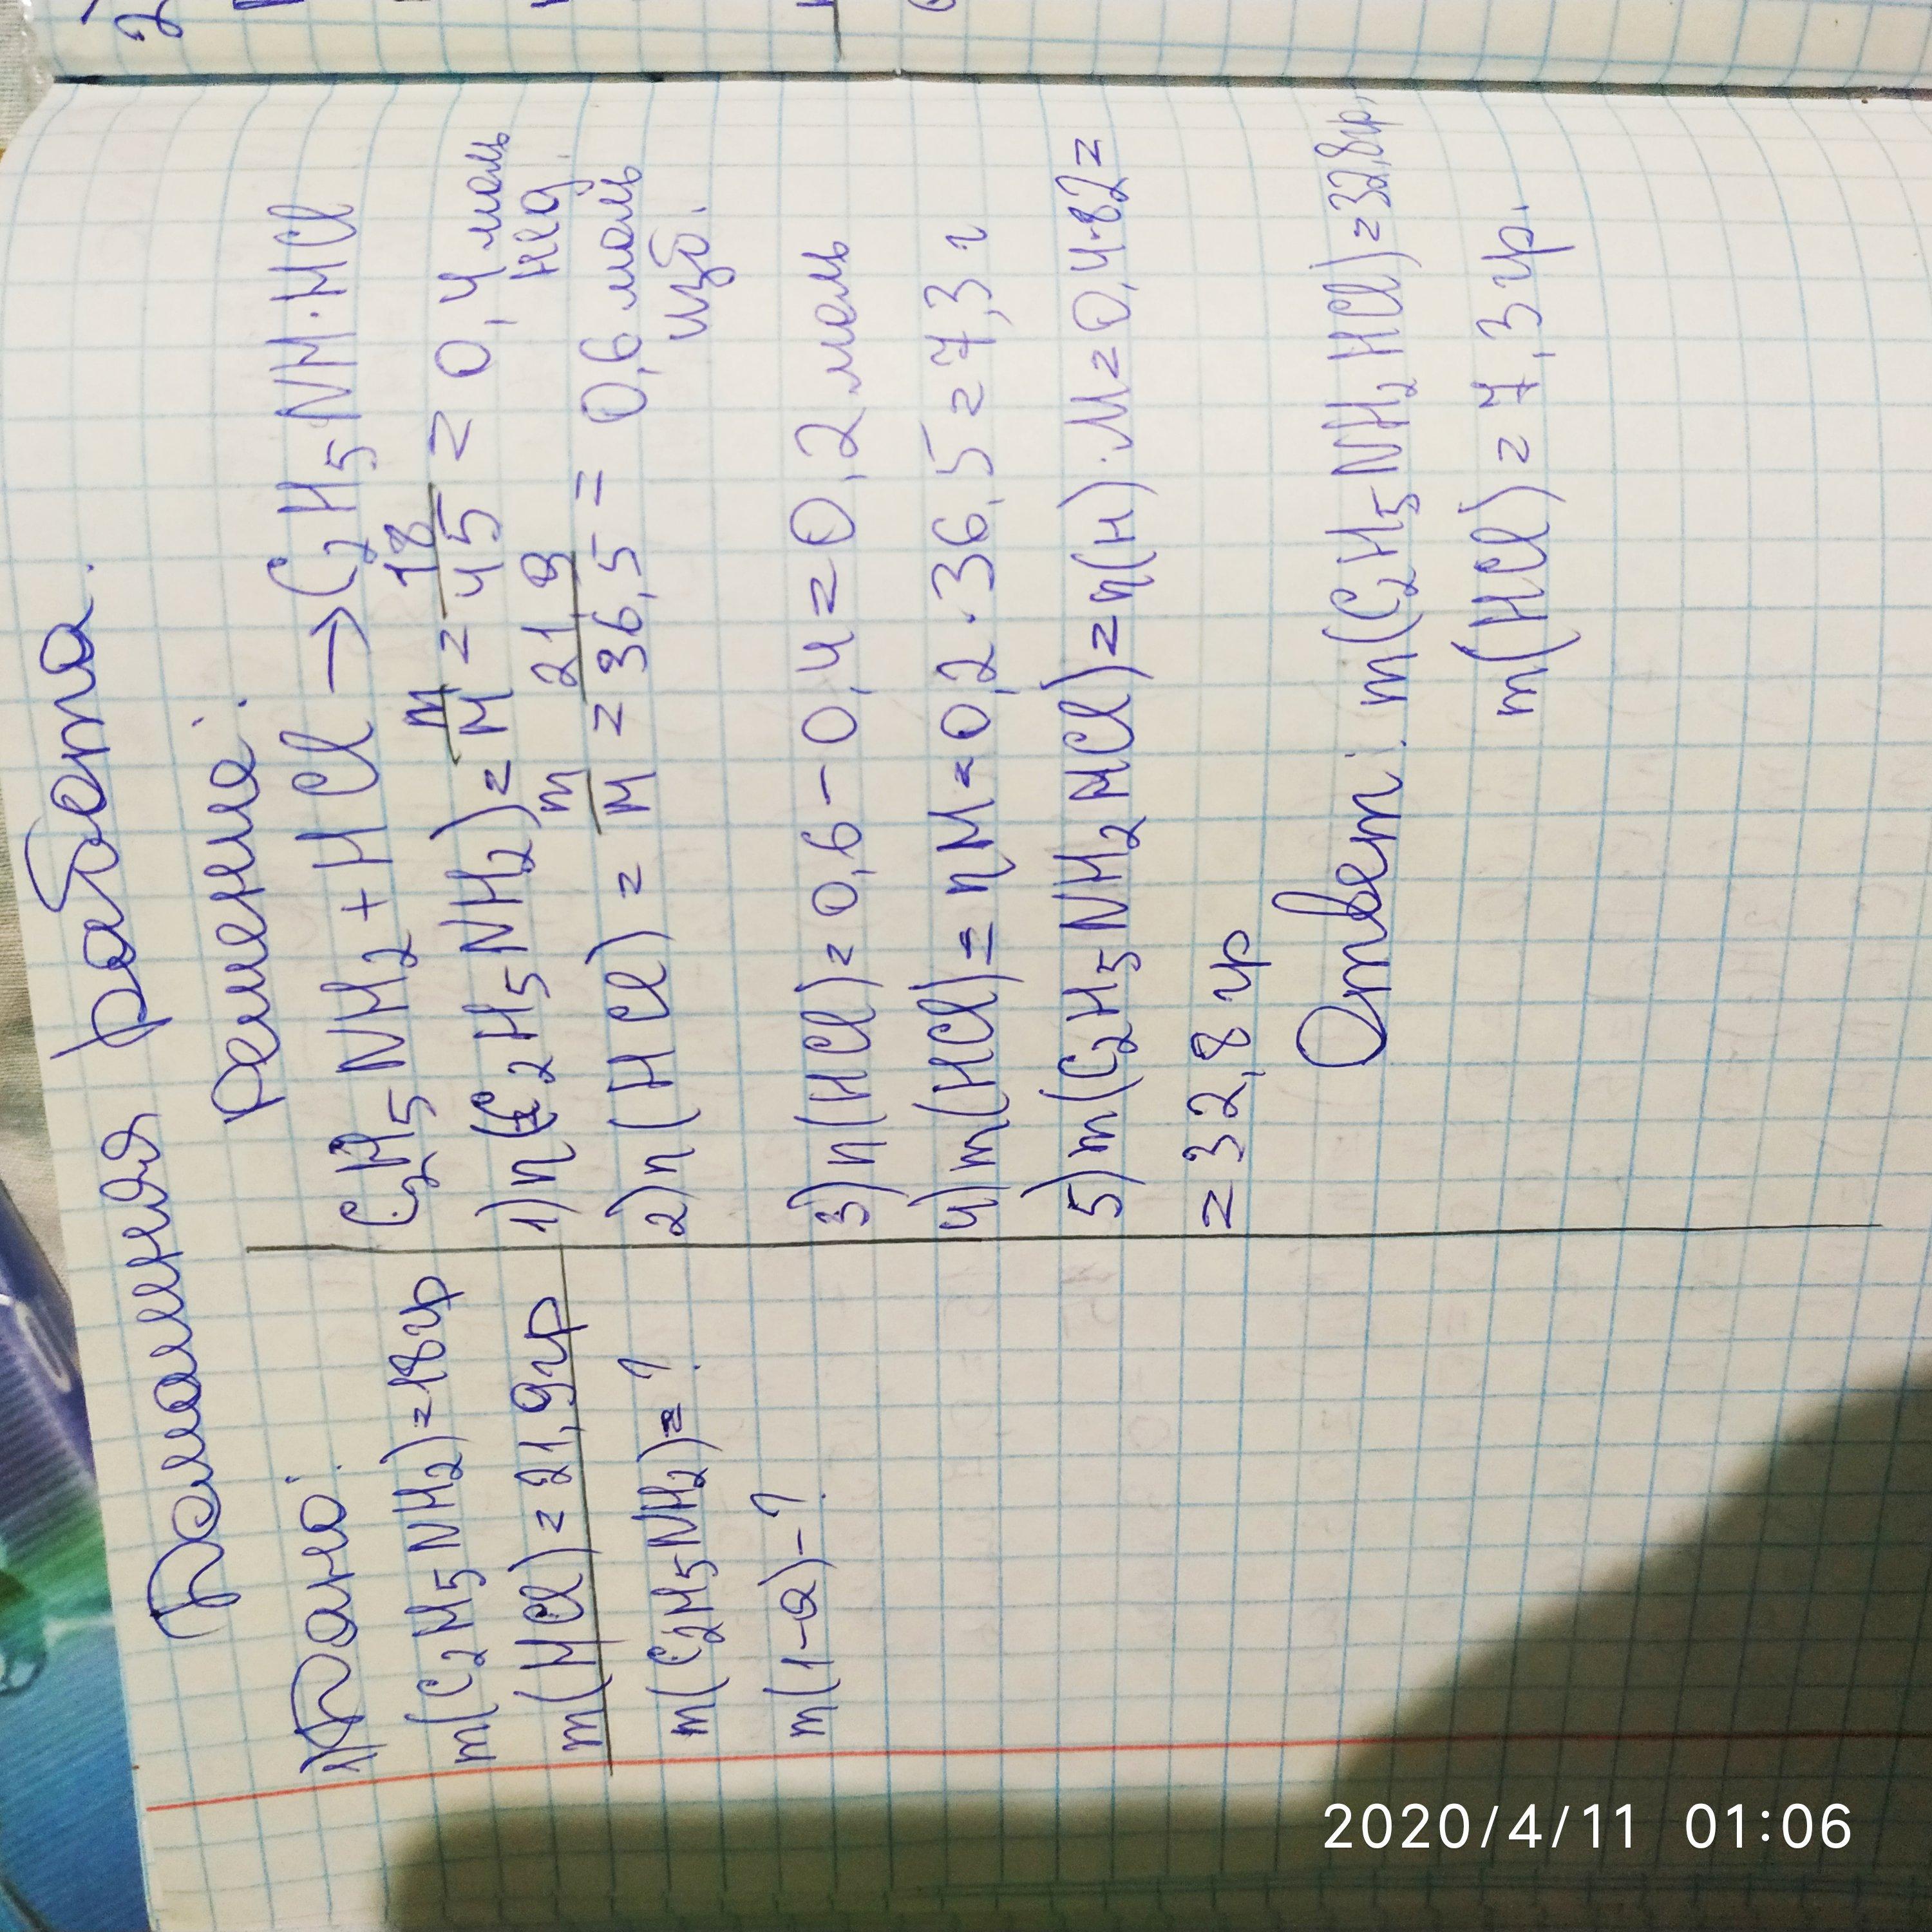 Домашняя работа.
Дано:
m(C₂H₅NH₂)=18гр
m(HCl)=21,9гр
m(C₂H₅NH₂)=?
m(1-а)-?
решение:
C₂H₅NH₂+HCl→C₂H₅NH·HCl
1)n(C₂H₅NH₂)=m/M=18/45=0,4моль
нед.
2)n(HCl)=m/M=21,9/36,5=0,6моль
изб.
3)n(HCl)=0,6-0,4=0,2моль
4)m(HCl)=nM=0,2·36,5=7,3г
5)m(C₂H₅NH₂HCl)=n(н)·M=0,4·82=
=32,8гр
Ответ: m(C₂H₅NH₂HCl)=32,8гр,
m(HCl)=7,3гр.
2020/4/11 01:06